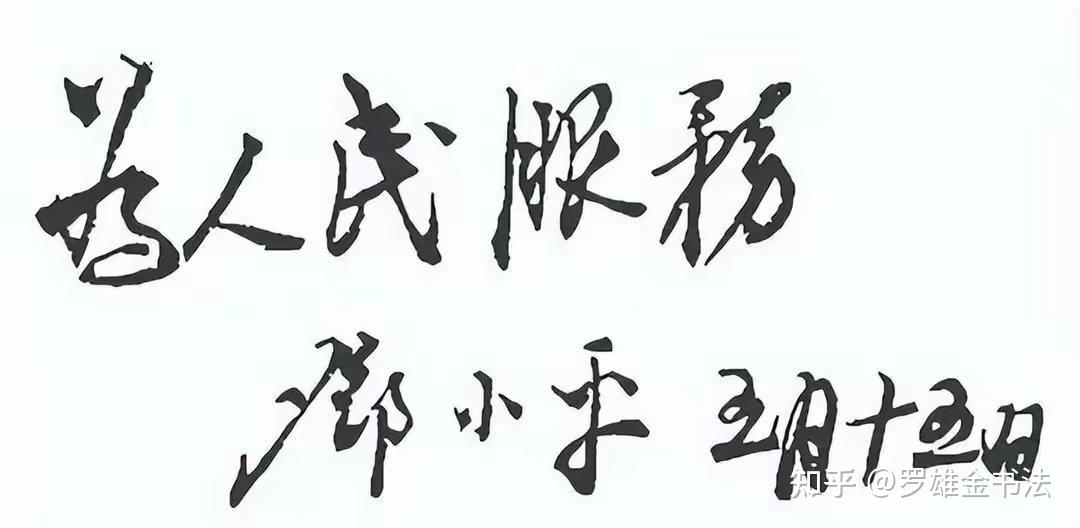 为人民服務
鄧小平 五月十五日
知乎 @罗雄金书法